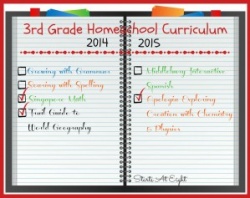 3rd Grade Homeschool Curriculum
2014 2015
Growing with Grammar
Soaring with Spelling
Singapore Math
Trail Guide to
World Geography
Middlebury Interactive
Spanish
Apologia Exploring
Creation with Chemistry
& Physics
Starts At Eight